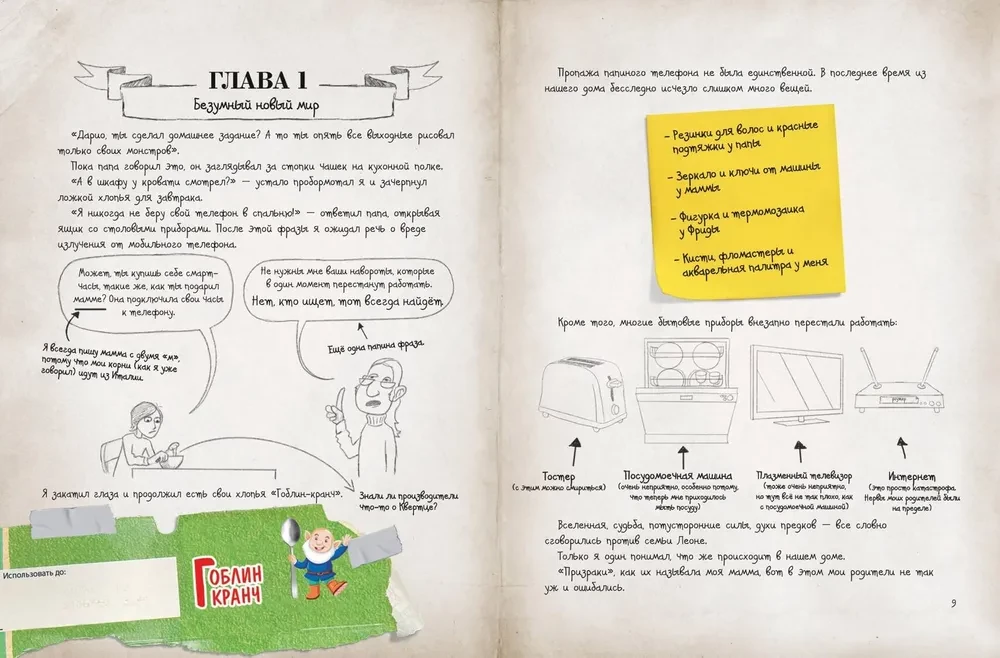 ГЛАВА 1
Безумный новый мир
«Дарио, ты сделал домашнее задание? А то ты опять все выходные рисовал
только своих монстров».
Пока папа говорил это, он заглядывал за стопки чашек на кухонной полке.
«А в шкафу у кровати смотрел?» — устало пробормотал я и зачерпнул
ложкой хлопья для завтрака.
«Я никогда не беру свой телефон в спальню!» — ответил папа, открывая
ящик со столовыми приборами. После этой фразы я ожидал речь о вреде
излучения от мобильного телефона.
Может, ты купишь себе смарт-
часы, такие же, как ты подарил
мамме? Она подключила свои часы
к телефону.
Не нужны мне ваши навороты, которые
в один момент перестанут работать.
Нет, кто ищет, тот всегда найдёт.
Я всегда пишу мамма с двумя «м»,
потому что мои корни (как я уже
говорил) идут из Италии.
Ещё одна папина фраза.
Я закатил глаза и продолжил есть свои хлопья «Гоблин-кранч».
Знали ли производители
что-то о Квертце?
Использовать до:
ГОБЛИН
КРАНЧ
Пропажа папиного телефона не была единственной. В последнее время из
нашего дома бесследно исчезло слишком много вещей.
– Резинки для волос и красные
подтяжки у папы
– Зеркало и ключи от машины
у маммы
– Фигурка и термомозаика
у Фриды
– Кисти, фломастеры и
акварельная палитра у меня
Кроме того, многие бытовые приборы внезапно перестали работать:
Тостер
(с этим можно смириться)
Посудомоечная машина
(очень неприятно, особенно потому,
что теперь мне приходилось
мыть посуду)
Плазменный телевизор
(тоже очень неприятно,
но тут всё не так плохо, как
с посудомоечной машиной)
Интернет
(Это просто катастрофа.
Нервы моих родителей были
на пределе)
Вселенная, судьба, потусторонние силы, духи предков — все словно
сговорились против семьи Леоне.
Только я один понимал, что же происходит в нашем доме.
«Призраки», как их называла моя мамма, вот в этом мои родители не так
уж и ошибались.
9